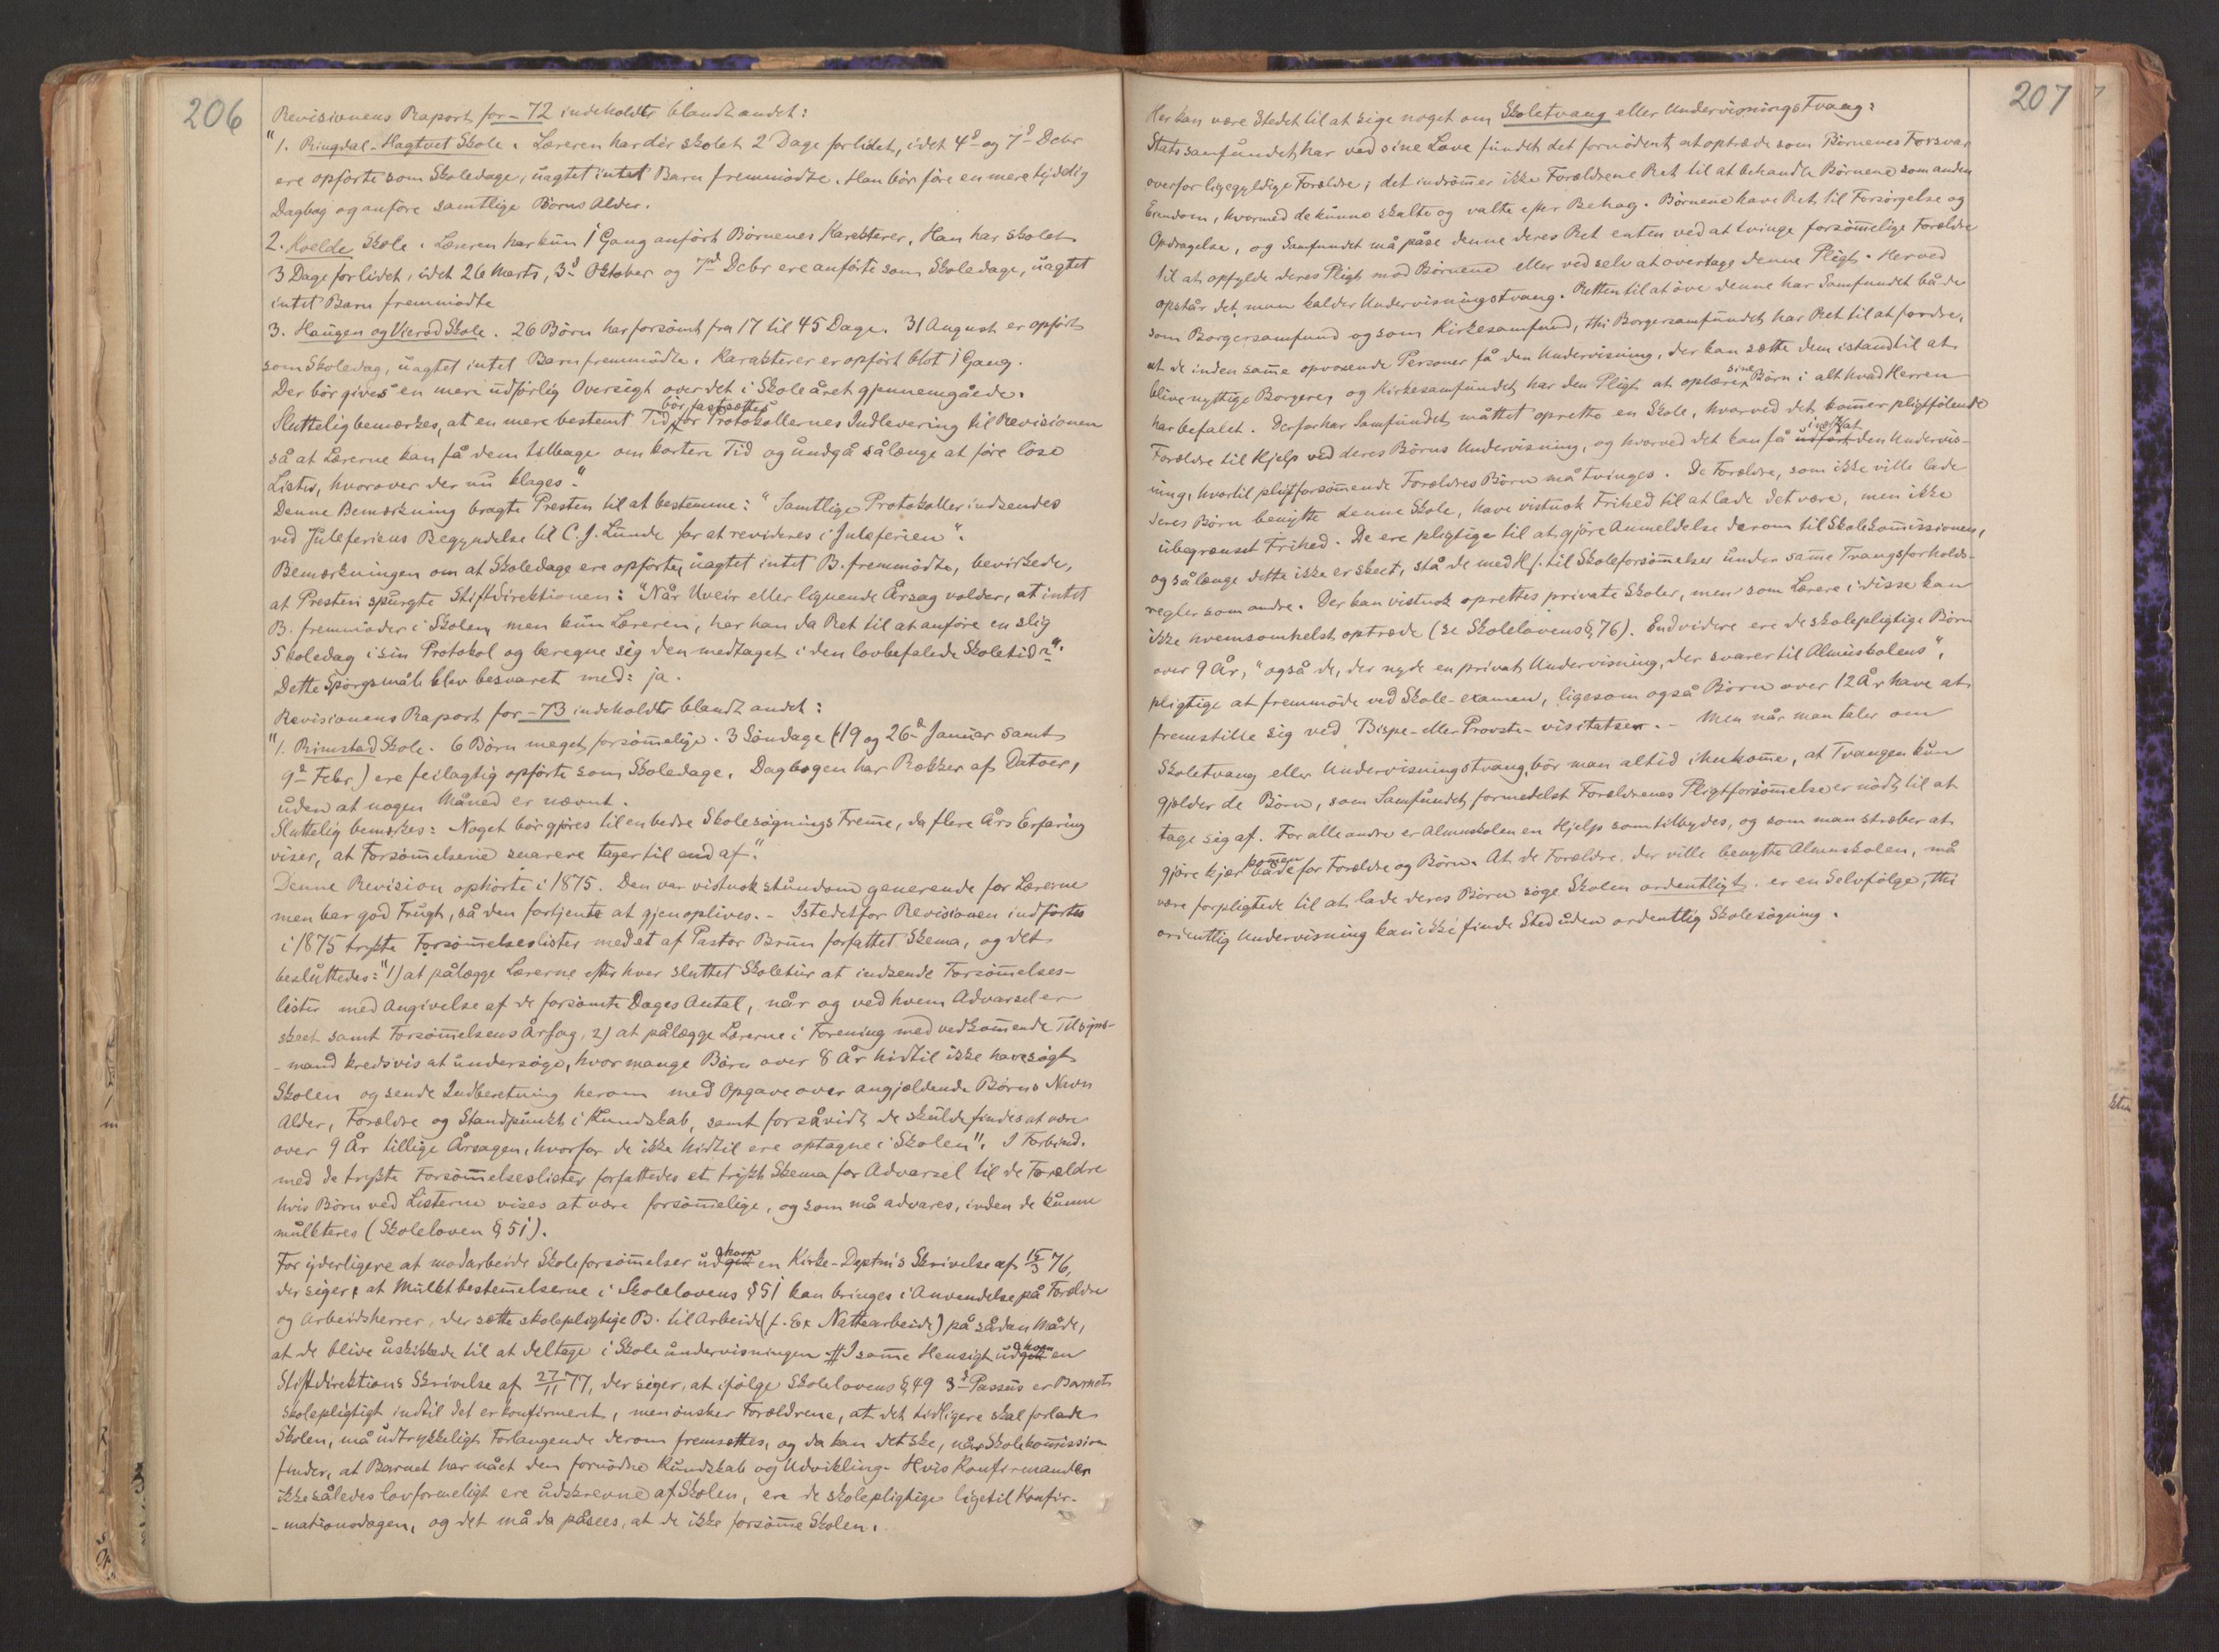 206
Revisionens Raport for - 72 indeholdt blandt andet:
"1. Ringdal-Hagtvet Skole. Læreren har der skolet 2 Dage forlidet, idet 4de og 7de Dcbr
ere opførte som Skoledage, uagtet intet Barn fremmødte. Han bør føre en mere tydelig
Dagbog og anføre samtlige Børns Alder.
2. Kvelde Skole. Læreren har kun 1 Gang anført Børnenes Karakterer. Han har skolet
3 Dage forlidet, idet 26 Marts, 3d Oktober og 7nd Dcbr ere anførte som Skoledage, uagtet
intet Barn fremmødte
3. Haugen og Vierød Skole. 26 Børn har forsømt fra 17 til 45 Dage. 31 August er opført
som Skoledag, uagtet intet Barn fremmødte. Karakterer er opført blot 1 Gang.
Der bør gives en mere udførlig Oversigt over det i Skoleåret gjennemgåede.
Sluttelig bemærkes, at en mere bestemt Tid bør fastsættes for Protokollernes Indlevering til Revisionen
så at Lærerne kan få dem tilbage om kortere Tid og undgå sålænge at føre løse
Lister, hvorover der nu klages".
Denne Bemærkning bragte Presten til at bestemme: "Samtlige Protokoller indsendes
ved Juleferiens Begyndelse til C. J. Lunde for at revideres i Juleferien".
Bemærkningen om at Skoledage ere opførte, uagtet intet B. fremmødte, bevirkede,
at Presten spurgte Stiftdirektionen: "Når Uveir eller lignende Årsag volder, at intet
B. fremmøder i Skolen, men kun Læreren, har han da Ret til at anføre en slig
Skoledag i sin Protokol og beregne sig den medtaget i den lovbefalede Skoletid?".
Dette Spørgsmål blev besvaret med: ja.
Revisionens Raport for - 73 indeholdt blandt andet:
"1. Rimstad Skole. 6 Børn meget forsømelige. 3 Søndage (19 og 26de Januar samt
9de Febr.) ere feilagtig opførte som Skoledage. Dagbogen har Rækker af Datoer,
uden at nogen Måned er nævnt.
Sluttelig bemærkes: Noget bør gjøres til en bedre Skolesøgnings Freme, da flere Års Erfaring
viser, at Forsømelserne snarere tager til end af".
Denne Revision ophørte i 1875. Den var vistnok stundom generende for Lærerne
men bar god Frugt, så den fortjente at gjenoplives. - Istedetfor Revisionen indførtes
i 1875 trykte Forsømelseslister med et af Pastor Brun forfattet Skema, og det
besluttedes: "1) at pålægge Lærerne efter hver sluttet Skoletur at indsende Forsømelses-
lister med Angivelse af de forsømte Dages Antal, når og ved hvem Advarsel er
skeet samt Forsømelsens Årsag, 2) at pålægge Lærerne i Forening med vedkomende Tilsyns-
- mand kredsvis at undersøge, hvor mange Børn over 8 År hidtil ikke have søgt
Skolen og sende Indberetning herom med Opgave over angjældende Børns Navn
Alder, Forældre og Standpunkt i Kundskab, samt forsåvidt de skulde findes at være
over 9 År tillige Årsagen, hvorfor de ikke hidtil ere optagne i Skolen". I Forbind.
med de trykte Forsømelseslister forfattedes et trykt Skema for Advarsel til de Forældre
hvis Børn ved Listerne vises at være forsømelige, og som må advares, inden de kunne
mulkteres (Skoleloven § 51).
For yderligere at modarbeide Skoleforsømelser udkom en Kirke-Deptm's Skrivelse af 15/3 76,
der siger, at Mulktbestemelserne i Skolelovens § 51 kan bringes i Anvendelse på Forældre
og Arbeidsherrer, der sætte skolepligtige B. til Arbeide (f. Ex Nattearbeide) på sådan Måde,
at de blive uskikkede til at deltage i Skoleundervisningen. I same Hensigt udkom en
Stiftdirektions Skrivelse af 27/11 77, der siger, at ifølge Skolelovens § 49 3d Passus er Barnet
skolepligtigt indtil det er konfirmeret, men ønsker Forældrene, at det tidligere skal forlade
Skolen, må udtrykkeligt Forlangende derom fremsættes, og da kan det ske, når Skolekomissionen
finder, at Barnet har nået den fornødne Kundskab og Udvikling. Hvis Konfirmander
ikke således lovformeligt ere udskrevne af Skolen, ere de skolepligtige ligetil Konfir-
- mationsdagen, og det må da påsees, at de ikke forsøme Skolen.
207
Her kan være Stedet til at sige noget om Skoletvang eller Undervisningstvang:
Statssamfundet har ved sine Love fundet det fornødent at optræde som Børnenes Forsvar
overfor ligegyldige Forældre; det indrømer ikke Forældrene Ret til at behandle Børnene som anden
Eiendom, hvormed de kunne skalte og valte efter Behag. Børnene have Ret til Forsørgelse og
Opdragelse, og Samfundet må påse denne deres Ret enten ved at tvinge forsømelige Forældre
til at opfylde deres Pligt mod Børnene eller ved selv at overtage denne Pligt. Herved
opstår det, man kalder Undervisningstvang. Retten til at øve denne har Samfundet både
som Borgersamfund og som Kirkesamfund, thi Borgersamfundet har Ret til at fordre,
at de inden same opvoxende Personer få den Undervisning, der kan sætte dem istand til at
blive nyttige Borgere, og Kirkesamfundet har den Pligt at oplære sine Børn i alt hvad Herren
har befalet. Derfor har Samfundet måttet oprette en Skole, hvorved det komer pligtfølende
Forældre til Hjelp ved deres Børns Undervisning, og hvorved det kan få ivæksat den Undervis-
ning, hvortil pligtforsømende Forældres Børn må tvinges. De Forældre, som ikke ville lade
deres Børn benytte denne Skole, have vistnok Frihed til at lade det være, men ikke
ubegrænset Frihed. De ere pligtige til at gjøre Anmeldelse derom til Skolekomissionen,
og sålænge dette ikke er skeet, stå de med H. t. til Skoleforsømelser under same Tvangsforholds-
regler som andre. Der kan vistnok oprettes private Skoler, men som Lærere i disse kan
ikke hvemsomhelst optræde (se Skolelovens § 76). Endvidere ere de skolepligtige Børn
over 9 År, "også de, der nyde en privat Undervisning, der svarer til Almuskolens",
pligtige at fremmøde ved Skole-examen, ligesom også Børn over 12 År have at
fremstille sig ved Bispe- eller Provste-visitatser. - Men når man taler om
Skoletvang eller Undervisningstvang, bør man altid ihukome, at Tvangen kun
gjælder de Børn, som Samfundet formedelst Forældrenes Pligtforsømelse er nødt til at
tage sig af. For alle andre er Almuskolen en Hjelp som tilbydes, og som man stræber at
gjøre kjær både for Forældre og Børn. At de Forældre, der ville benytte Almuskolen, må
være forpligtede til at lade deres Børn søge Skolen ordentligt, er en Selvfølge, thi
ordentlig Undervisning kan ikke finde Sted uden ordentlig Skolesøgning.